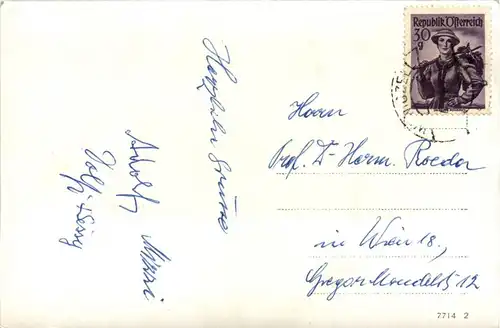 Republik Österreich
30
g
Herzliche Grüsse
Adolf Mizzi
Dolfi + Sissy
Herrn
Prof. Dr. Herm. Roeder
in Wien 18.,
Gregor Mendelstr 12
7714 2